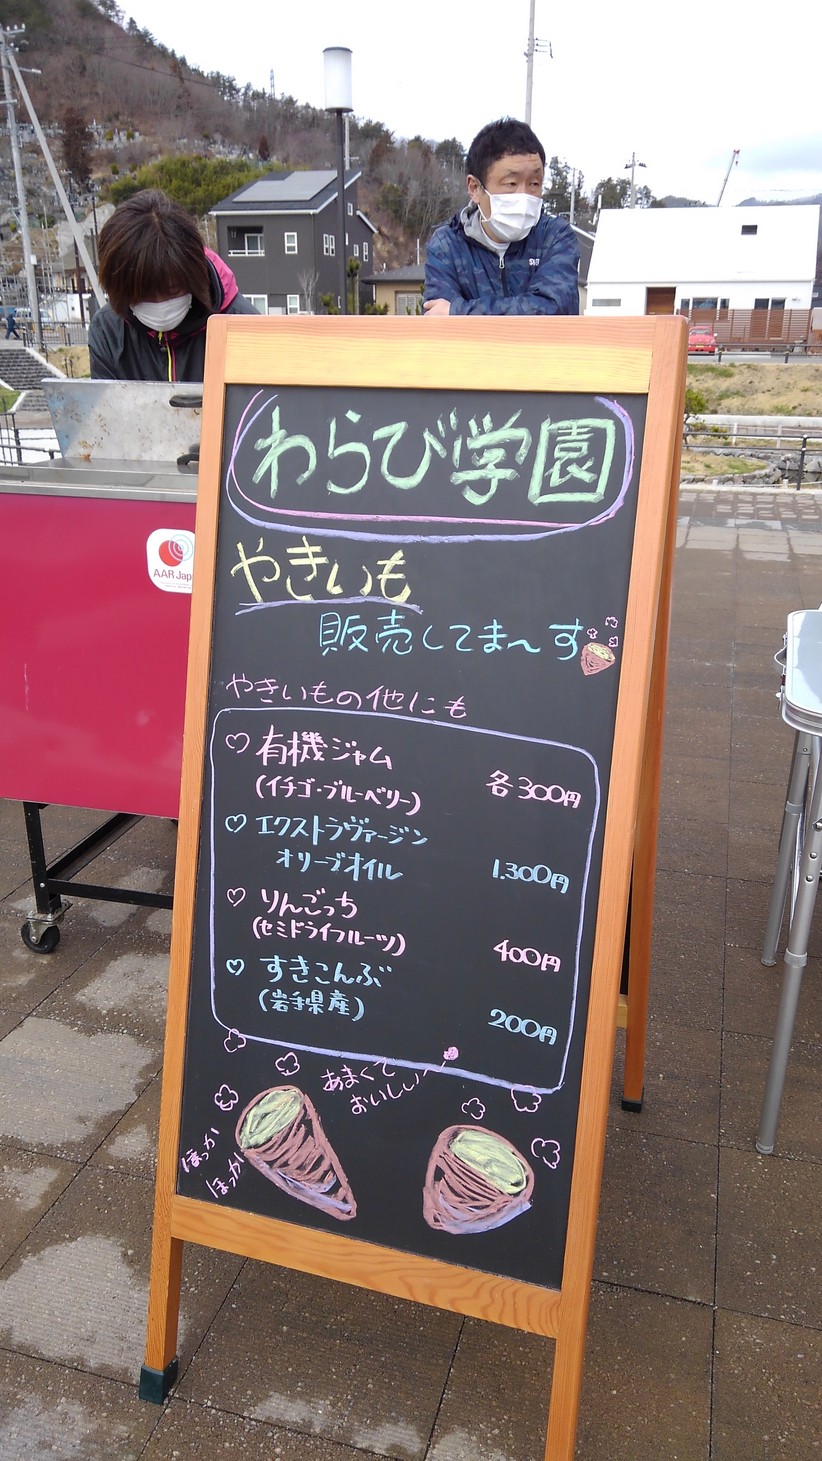 わらび学園
やきいも
販売してま〜す
やきいもの他にも
♡ 有機ジャム
(イチゴ・ブルーベリー) 各300円
♡ エクストラヴァージン
オリーブオイル 1.300円
♡ りんごっち
(セミドライフルーツ) 400円
♡ すきこんぶ
(岩手県産) 200円
あまくて
おいしい〜
ほっか
ほっか
AAR Jap